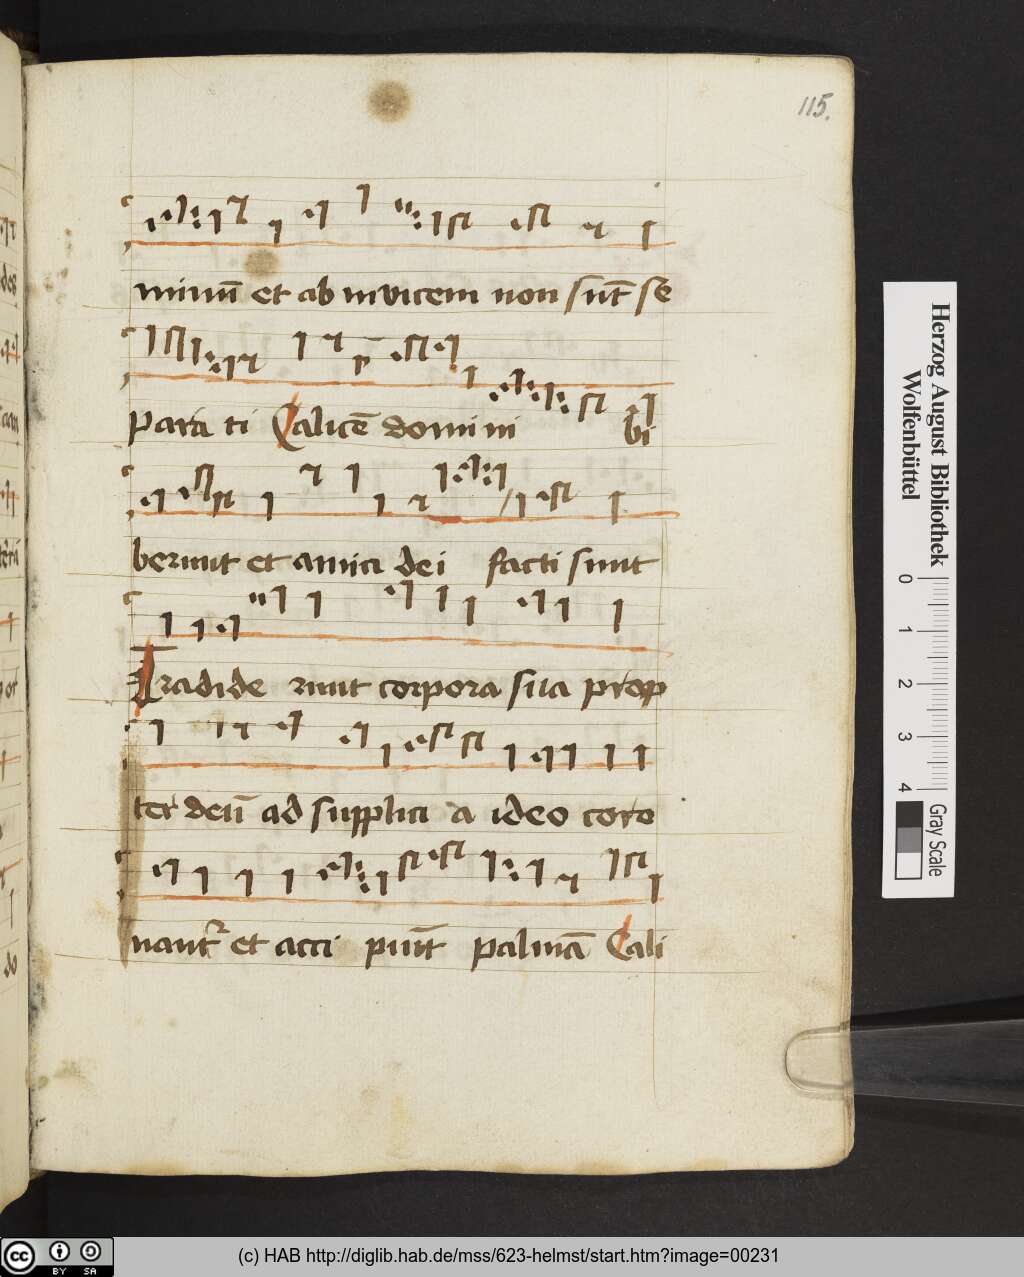 115.
minū et ab invicem non sūt se
para ti Calicē domini bi
berunt et amici dei facti sunt
Tradide runt corpora sua prop
ter deū ad supplici a ideo coro
nant᷑ et acci piūt palmā Cali
Herzog August Bibliothek
Wolfenbüttel
0 1 2 3 4
Gray Scale
cc BY SA
(c) HAB http://diglib.hab.de/mss/623-helmst/start.htm?image=00231